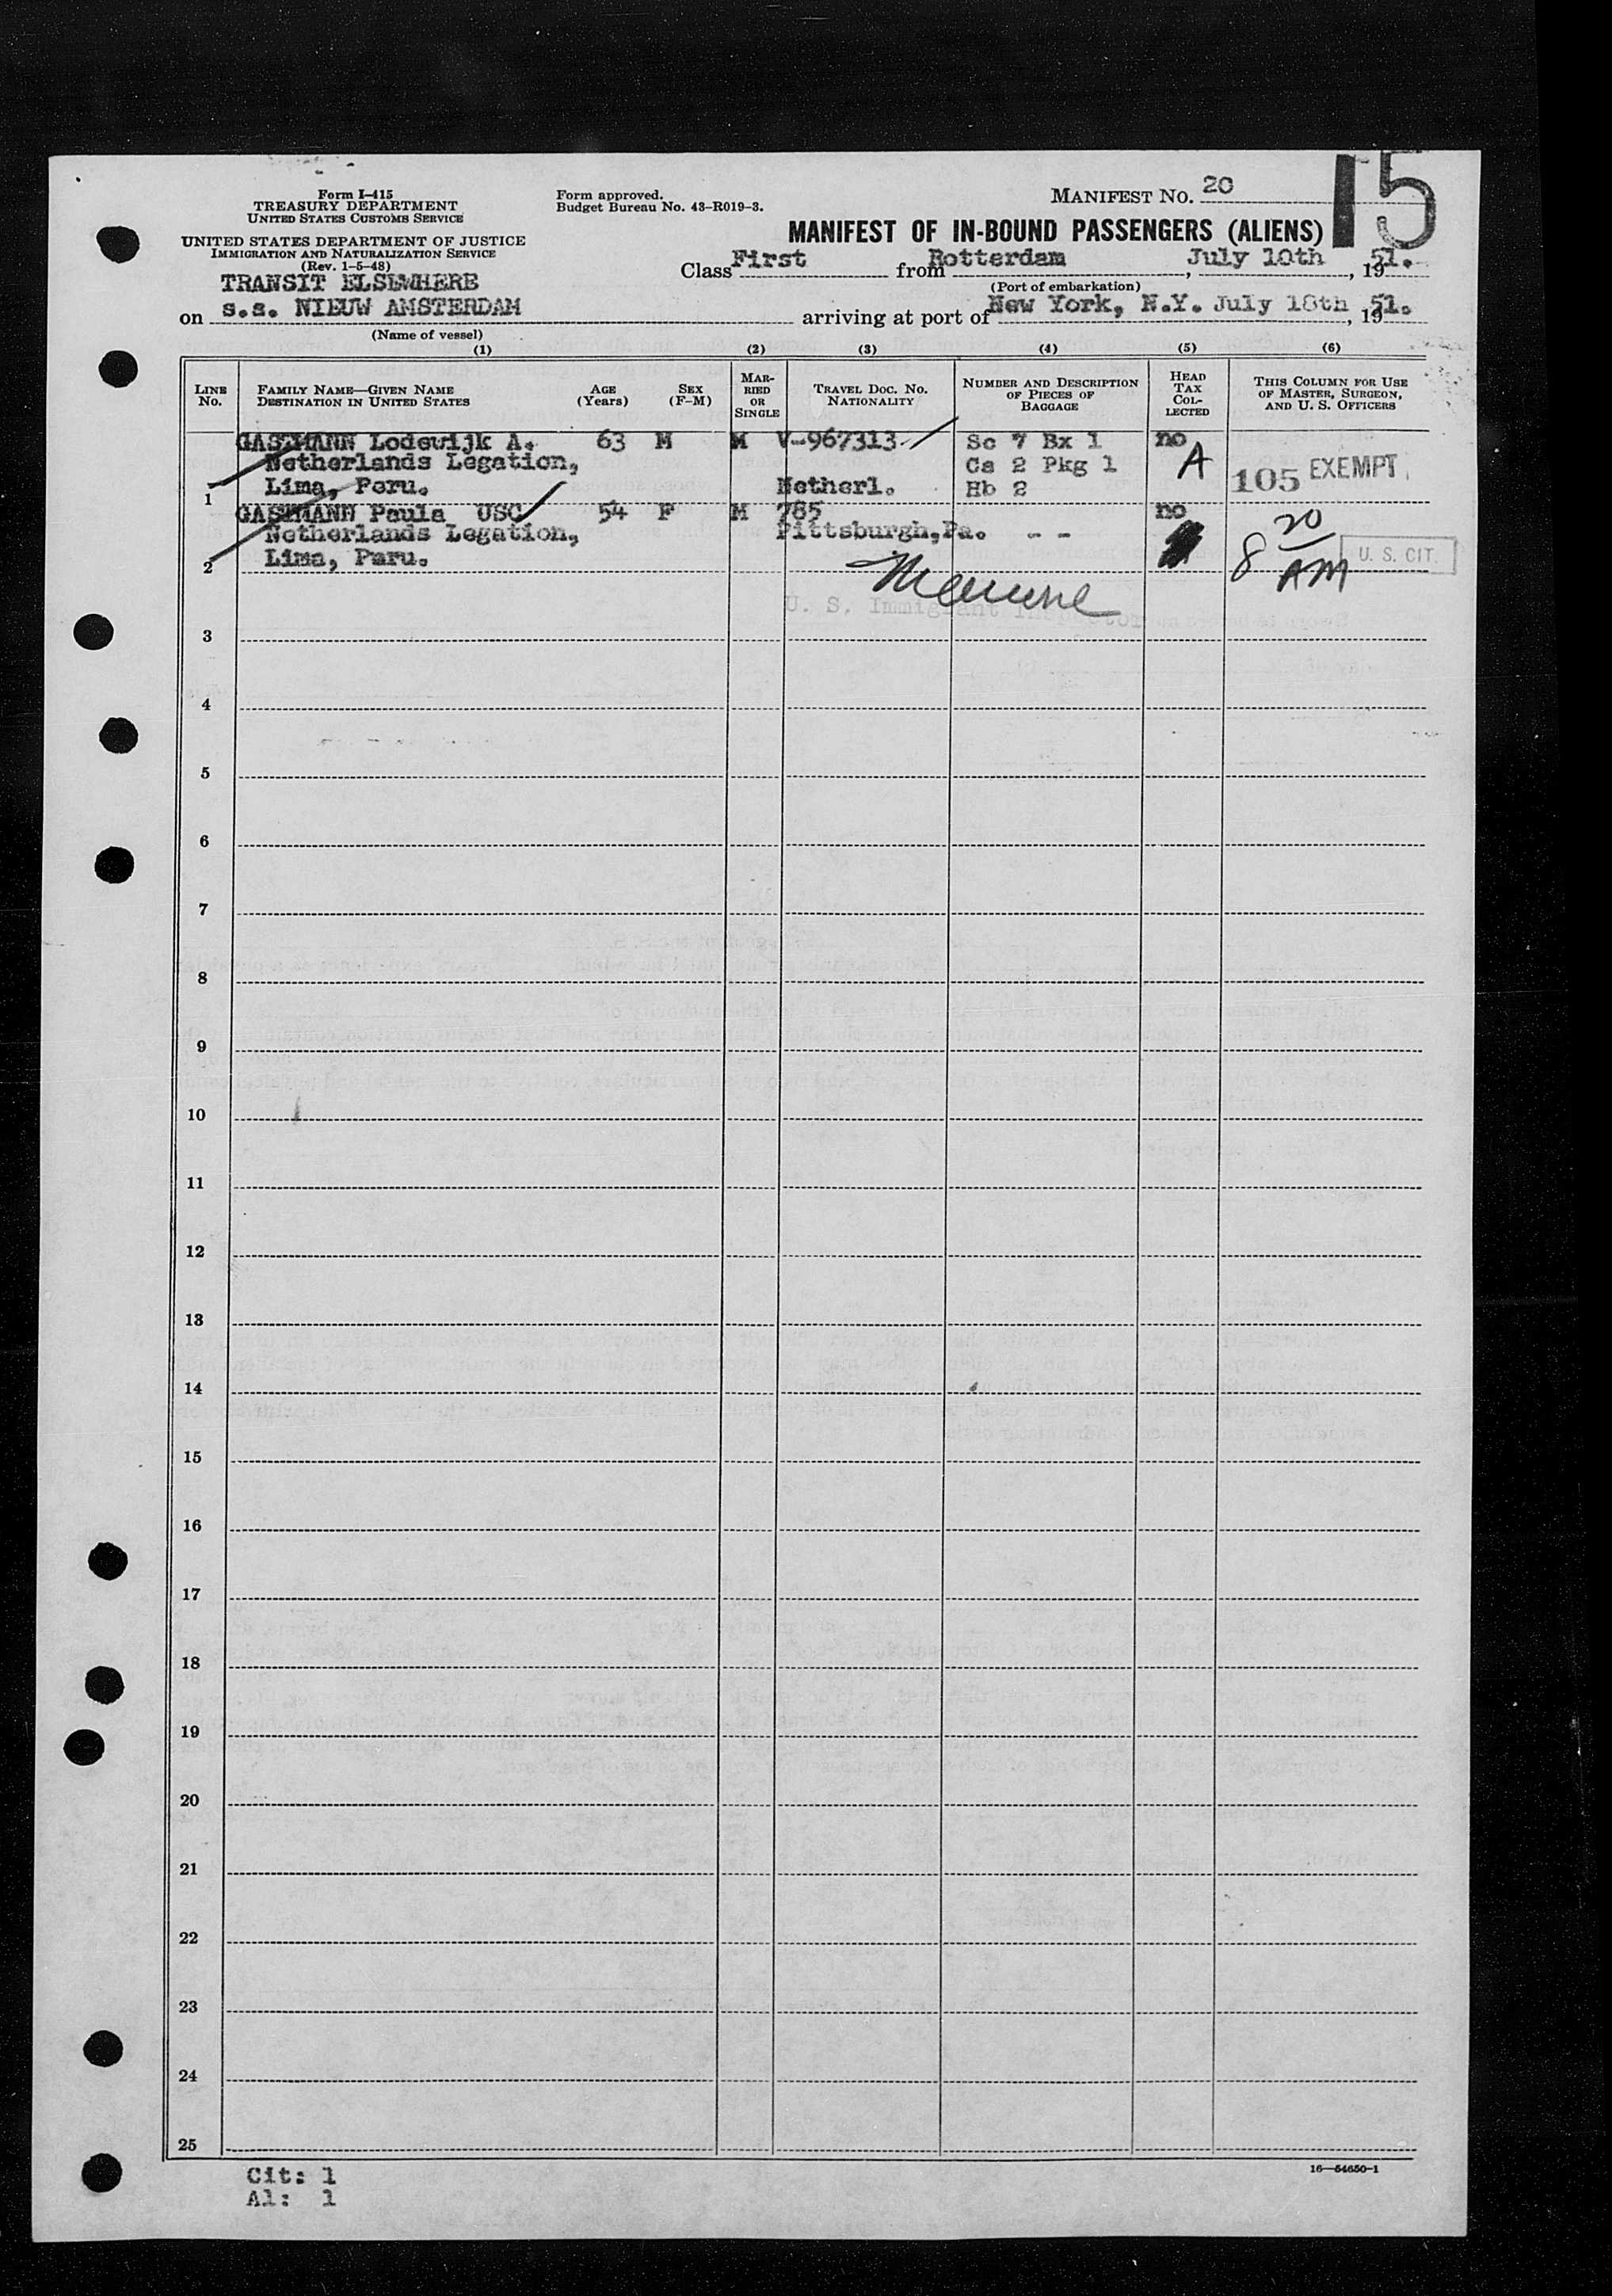 Form I-415
TREASURY DEPARTMENT
UNITED STATES CUSTOMS SERVICE
UNITED STATES DEPARTMENT OF JUSTICE
IMMIGRATION AND NATURALIZATION SERVICE
(Rev. 1-5-48)
Form approved.
Budget Bureau No. 43-R019-3.
MANIFEST No. 20
15
MANIFEST OF IN-BOUND PASSENGERS (ALIENS)
Class First from Rotterdam, July 10th, 1951.
(Port of embarkation)
TRANSIT ELSEWHERE
on s.s. NIEUW AMSTERDAM arriving at port of New York, N.Y. July 18th, 1951.
(Name of vessel)
(1) (2) (3) (4) (5) (6)
LINE No.
FAMILY NAME—GIVEN NAME
DESTINATION IN UNITED STATES
AGE (Years)
SEX (F-M)
MARRIED OR SINGLE
TRAVEL DOC. NO. NATIONALITY
NUMBER AND DESCRIPTION OF PIECES OF BAGGAGE
HEAD TAX COLLECTED
THIS COLUMN FOR USE OF MASTER, SURGEON, AND U. S. OFFICERS
GASTMANN Lodewijk A. 63 M M V-967313 Sc 7 Bx 1 no
Netherlands Legation, Cs 2 Pkg 1 A 105 EXEMPT
1 Lima, Peru. Netherl. Hb 2
GASTMANN Paula USC 54 F M 785 no
Netherlands Legation, Pittsburgh, Pa. - - 8 20 AM
2 Lima, Peru. U. S. CIT.
U. S. Immigrant Inspector
3
4
5
6
7
8
9
10
11
12
13
14
15
16
17
18
19
20
21
22
23
24
25
Cit: 1
Al: 1
16—54650-1